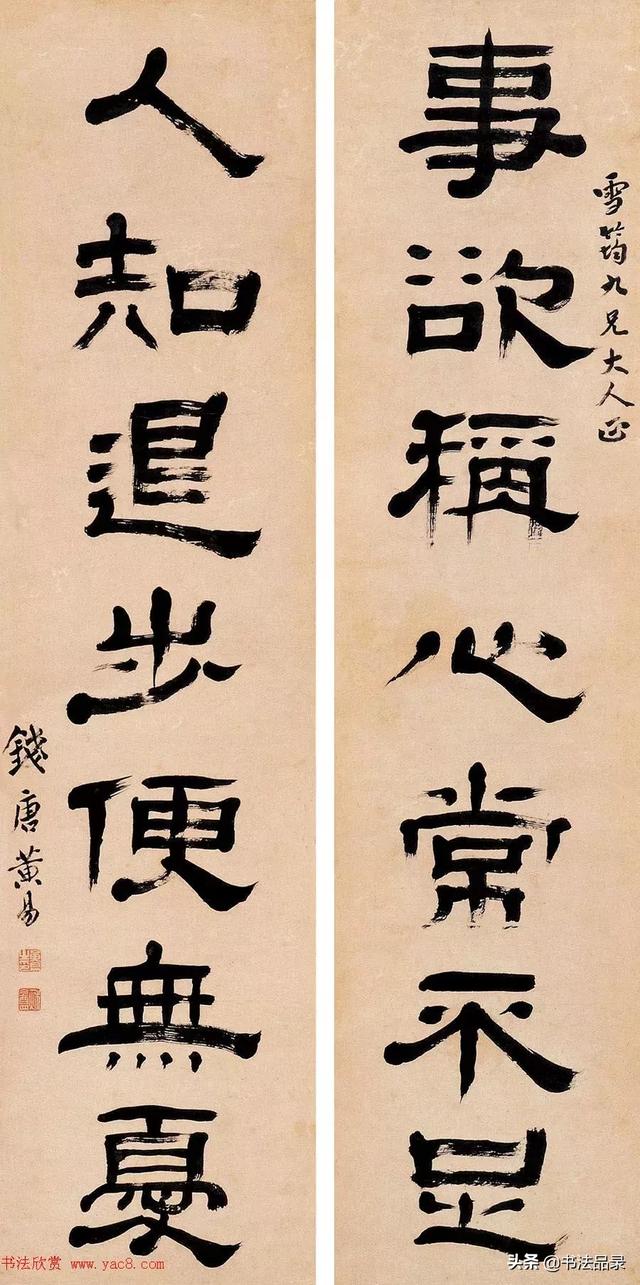 雪筠九兄大人正
事欲稱心常不足
人知退步便無憂
錢唐黃易
书法欣赏 www.yac8.com
头条 @书法品录